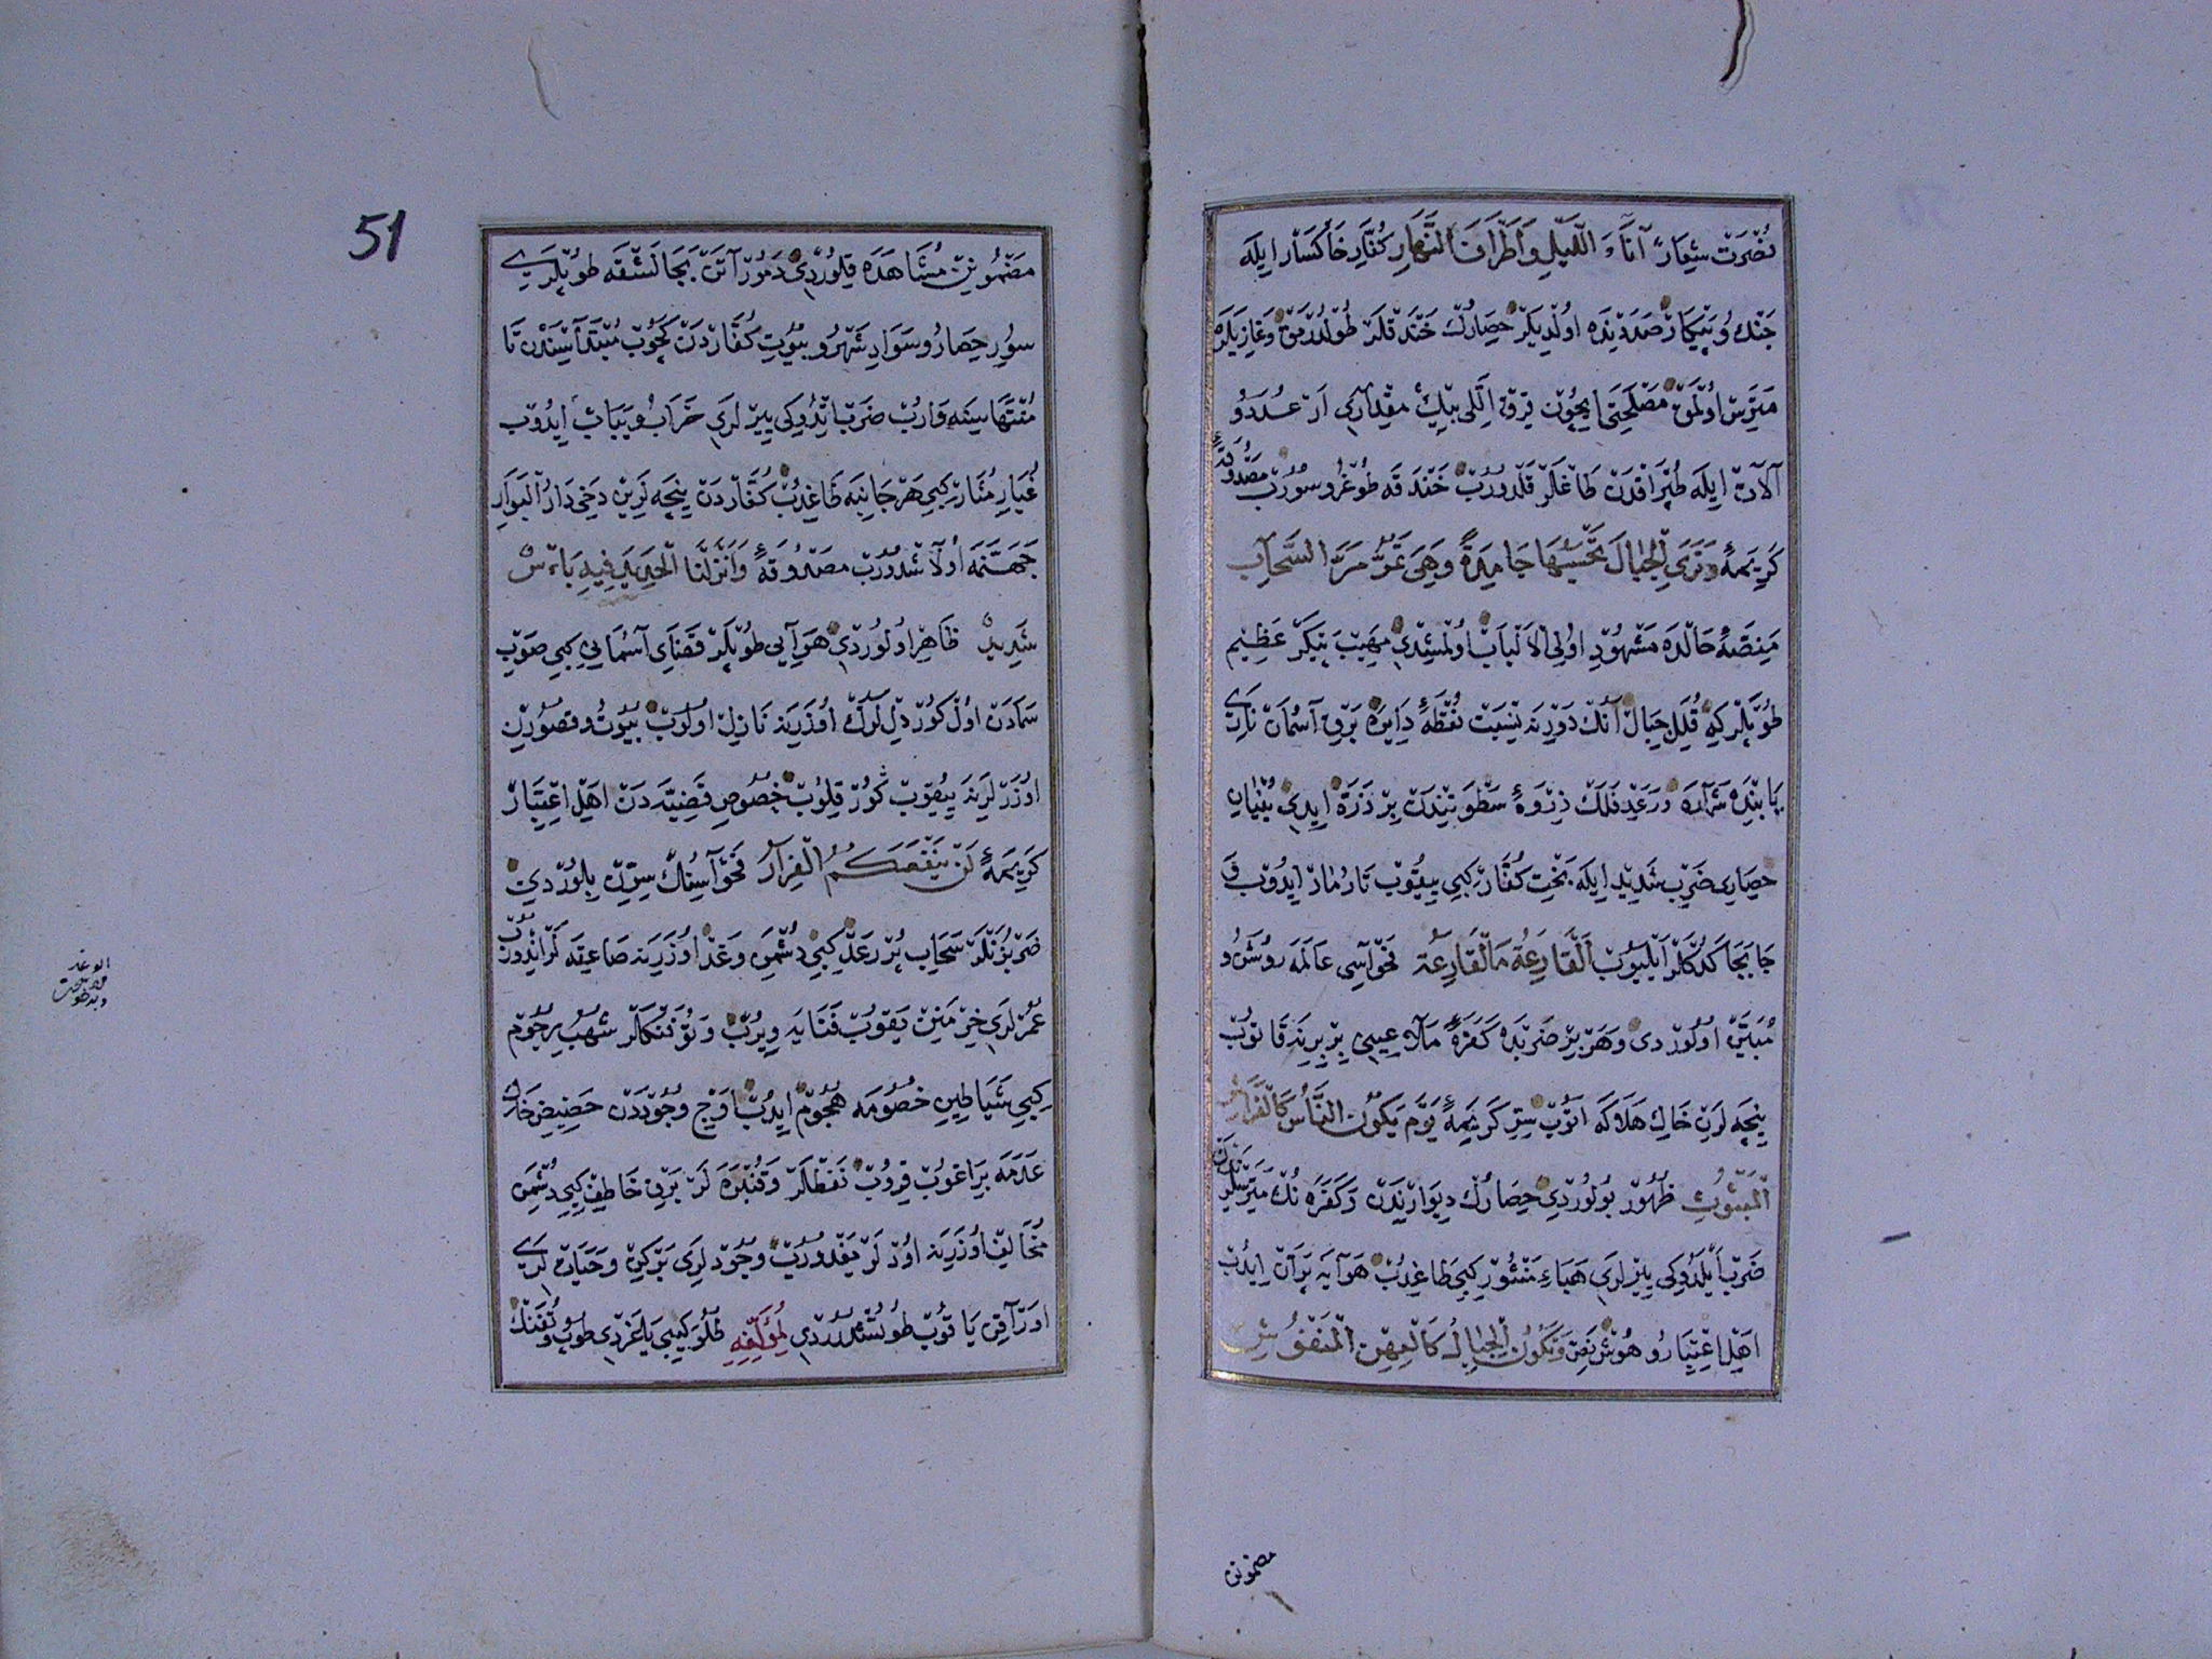 نصرت شعار آناء اللیل واطراف النهار کفار خاکسار ایله
جنك و پیکار صددنده اولدیلر حصارك خندقلر طولدرمق وغازیلره
متریس اولمق مصلحتی ایچون قرق اللی بیك مقداری ار عدد و
آلات ایله طپراقدن طاغلر قلدورب خندقه طوغرو سورب مصدوقۀ
کریمۀ وتری الجبال تحسبها جامدة وهی تمر مر السحاب
منصۀ حالده مشهود اولی الالباب اولمشدی مهیب پیکر عظیم
طوپلر که قلل جبال آنك دورنه نسبت نقطۀ دایره برق آسمان نار
یاننده شراره و رعد فلك ذروۀ سطوتندن بر ذره ایدی بنیان
حصاری ضرب شدید ایله بخت کفار کبی ییقوب تارمار ایدوب و
جابجا کدکلر ایلیوب القارعة ما القارعة فحواسی عالمه روشن و
مبین اولوردی وهر بر ضربده کفرۀ ملاعینی بر برینه قاتوب
نیچه لرن خاك هلاکه اتوب سر کریمۀ یوم یکون الناس کالفراش
المبثوث ظهور بولوردی حصارك دیوارندن و کفره نك متریسلرندن
ضرب ایلدوکی یرلری هباء منثور کبی طاغدب هوایه پران ایدب
اهل اعتبار و هوش نص وتکون الجبال کالعهن المنفوش
مضمونن
51
مضمونن مشاهده قلوردی دمور آتن بجالشقه طوپلری
سور حصار و سواد شهر و بیوت کفاردن کچوب مبتداسندن تا
منتهاسنه وارب ضرب اتدوکی یرلری خراب و یباب ایدوب
غبار منار کبی هر جانبه طاغدب کفاردن نیچه لرین دخی دار البوار
جهنمه اولاشدورب مصدوقۀ وانزلنا الحدید فیه باس
شدید ظاهر اولوردی هوایی طوپلر قضای آسمانی کبی صوب
سمادن اول کوردللرك اوزرینه نازل اولوب بیوت و قصورین
اوزرلرینه ییقوب کور قلوب خصوص قضیه دن اهل اعتبار
کریمۀ لن ینفعکم الفرار فحواسنك سرین بلوردی
ضربزنلر سحاب پر رعد کبی دشمن وغد اوزرینه صاعقه لر ایندورب
عمرلری خرمنین یقوب فنایه ویرب و توفنکلر شهب رجوم
کبی شیاطین خصومه هجوم ایدب اوج وجوددن حضیض خاك
عدمه براغوب قروب نفطلر و قنبره لر برق خاطف کبی دشمن
مخالف اوزرینه اودلر یغدورب وجودلری برکین و حیاتلری
اوراقن یاقوب طوتشدردی لمؤلفه طلو کبی یاغردی طوپ و تفنك